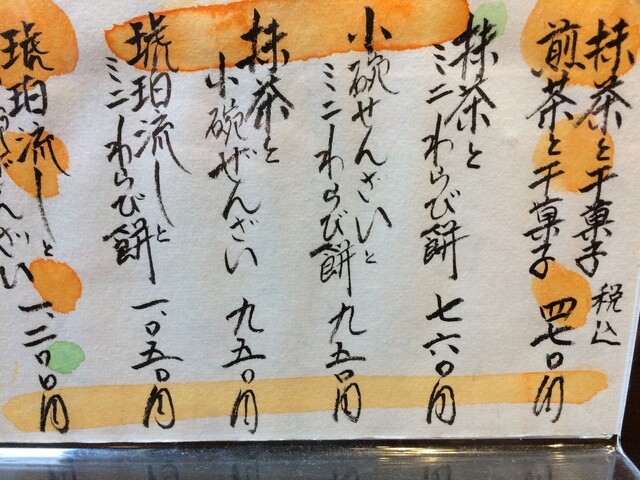 抹茶と干菓子
煎茶と干菓子
税込
四七〇円
抹茶と
ミニわらび餅
七六〇円
小碗ぜんざいと
ミニわらび餅
九五〇円
抹茶と
小碗ぜんざい
九五〇円
琥珀流しと
ミニわらび餅
一、〇五〇円
琥珀流しと
ぜんざい
一、二〇〇円